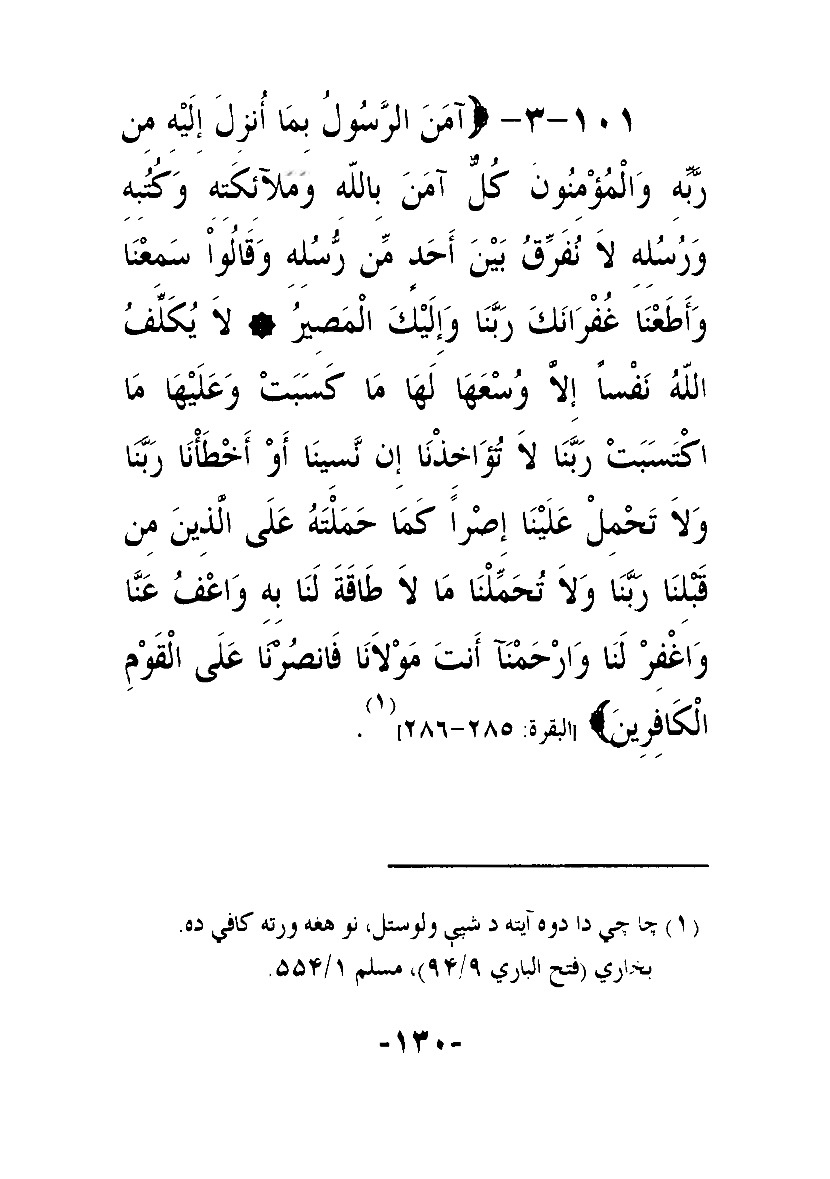 ١٠١-٣- ﴿آمَنَ الرَّسُولُ بِمَا أُنزِلَ إِلَيْهِ مِن
رَّبِّهِ وَالْمُؤْمِنُونَ كُلٌّ آمَنَ بِاللّهِ وَمَلآئِكَتِهِ وَكُتُبِهِ
وَرُسُلِهِ لاَ نُفَرِّقُ بَيْنَ أَحَدٍ مِّن رُّسُلِهِ وَقَالُواْ سَمِعْنَا
وَأَطَعْنَا غُفْرَانَكَ رَبَّنَا وَإِلَيْكَ الْمَصِيرُ ۞ لاَ يُكَلِّفُ
اللّهُ نَفْساً إِلاَّ وُسْعَهَا لَهَا مَا كَسَبَتْ وَعَلَيْهَا مَا
اكْتَسَبَتْ رَبَّنَا لاَ تُؤَاخِذْنَا إِن نَّسِينَا أَوْ أَخْطَأْنَا رَبَّنَا
وَلاَ تَحْمِلْ عَلَيْنَا إِصْراً كَمَا حَمَلْتَهُ عَلَى الَّذِينَ مِن
قَبْلِنَا رَبَّنَا وَلاَ تُحَمِّلْنَا مَا لاَ طَاقَةَ لَنَا بِهِ وَاعْفُ عَنَّا
وَاغْفِرْ لَنَا وَارْحَمْنَآ أَنتَ مَوْلاَنَا فَانصُرْنَا عَلَى الْقَوْمِ
الْكَافِرِينَ﴾ [البقرة: ٢٨٥-٢٨٦](١).
(١) چا چي دا دوه آيته د شپې ولوستل، نو هغه ورته كافي ده.
بخاري (فتح الباري ٩/٩۴)، مسلم ١/۵۵۴.
-١٣٠-